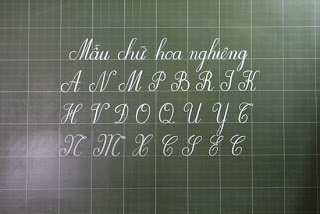 Mẫu chữ hoa nghiêng
A N M P B R I K
H V D O Q U Y T
N M X C S E C